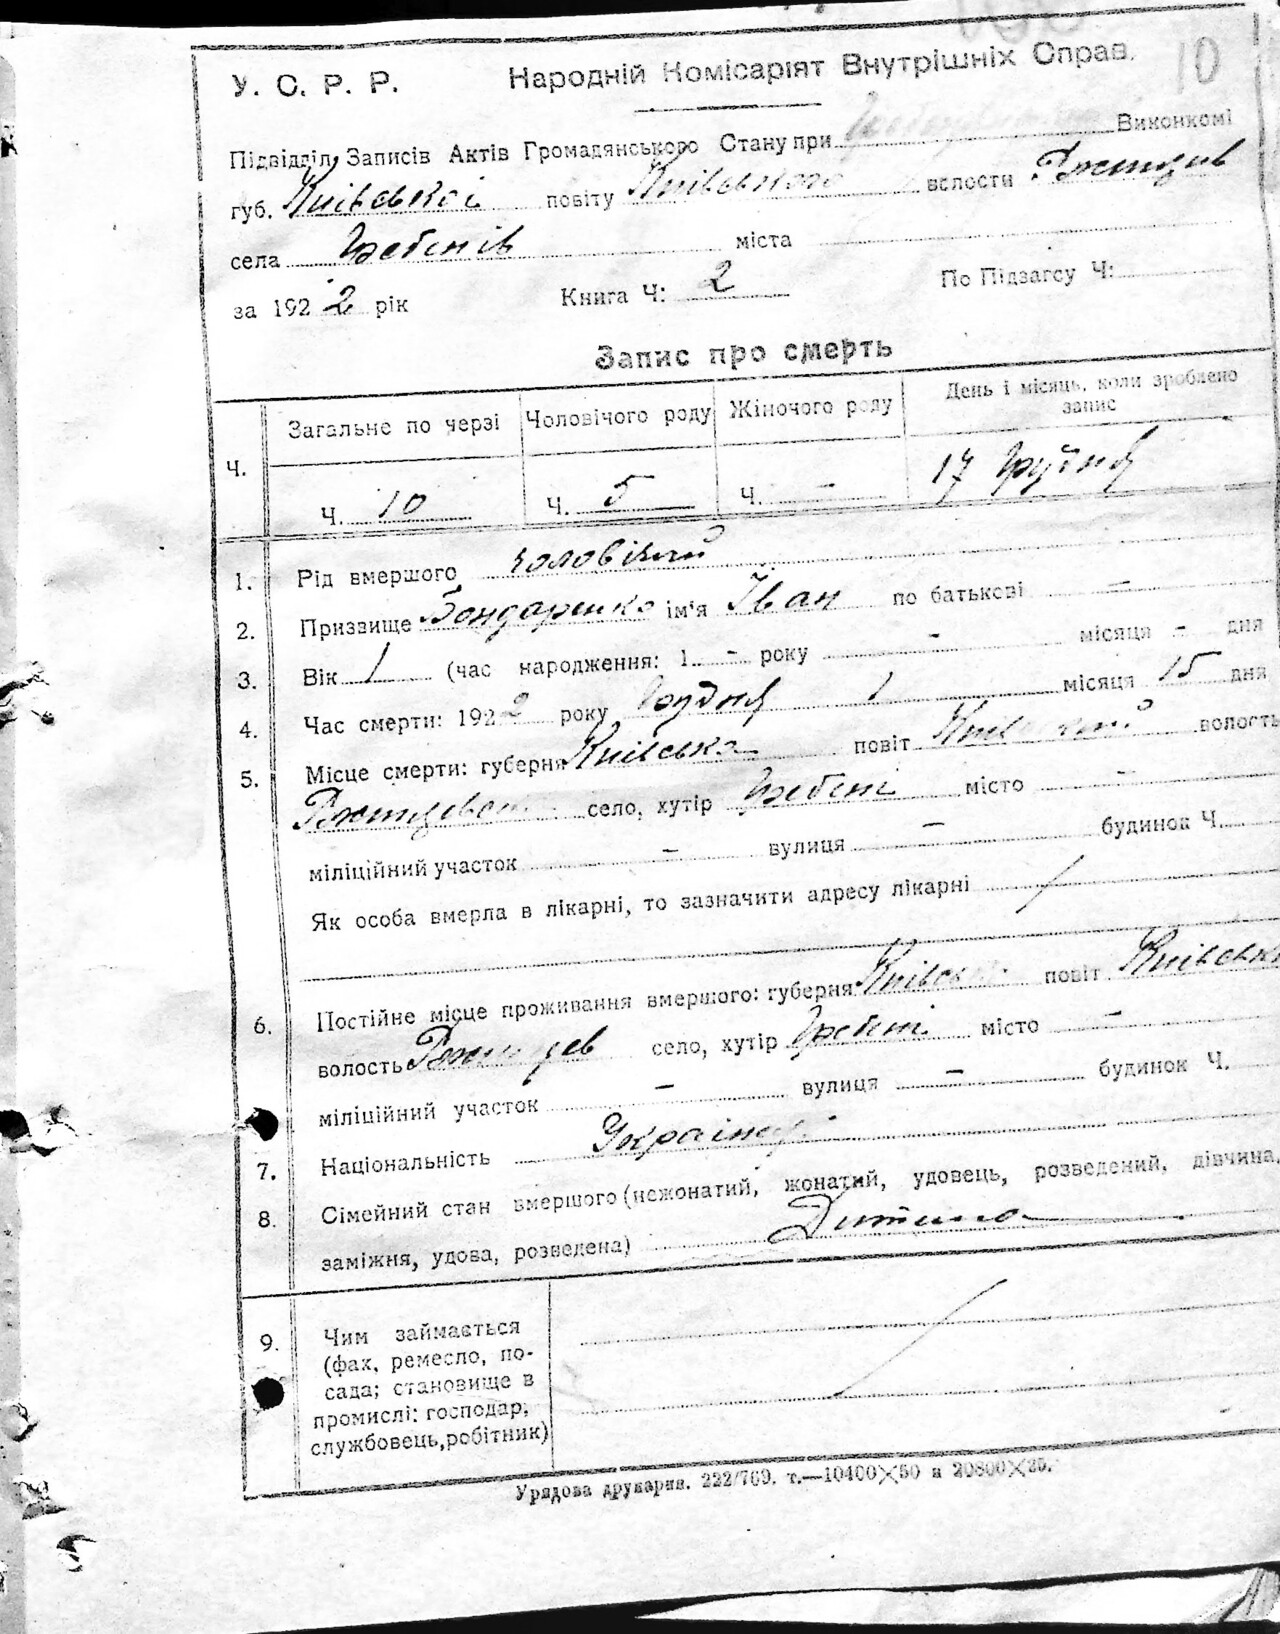 10
У. С. Р. Р. Народній Комісаріят Внутрішніх Справ.
Підвідділ Записів Актів Громадянського Стану при Виконкомі
губ. Київської повіту Київського волости Ржищів
села Гребенів міста
за 1922 рік Книга Ч: 2 По Підзагсу Ч:
Запис про смерть
Ч. Загальне по черзі Чоловічого роду Жіночого роду День і місяць, коли зроблено запис
Ч. 10 Ч. 5 Ч. - 17 Грудня
1. Рід вмершого чоловічий
2. Призвище Бондаренко ім'я Іван по батькові -
3. Вік 1 (час народження: 1 - року - місяця - дня
4. Час смерти: 1922 року Грудня місяця 15 дня
5. Місце смерти: губерня Київська повіт Київський волость
село, хутір Гребені місто -
міліційний участок - вулиця - будинок Ч.
Як особа вмерла в лікарні, то зазначити адресу лікарні
6. Постійне місце проживання вмершого: губерня Київсь повіт Київськ
волость Ржищев село, хутір Гребені місто -
міліційний участок - вулиця - будинок Ч.
7. Національність Українец
8. Сімейний стан вмершого (нежонатий, жонатий, удовець, розведений, дівчина,
заміжня, удова, розведена) Дитина
9. Чим займається
(фах, ремесло, по-
сада; становище в
промислі: господар,
службовець, робітник)
Урядова друкарня. 222/769. т.—10400×50 и 20800×25.